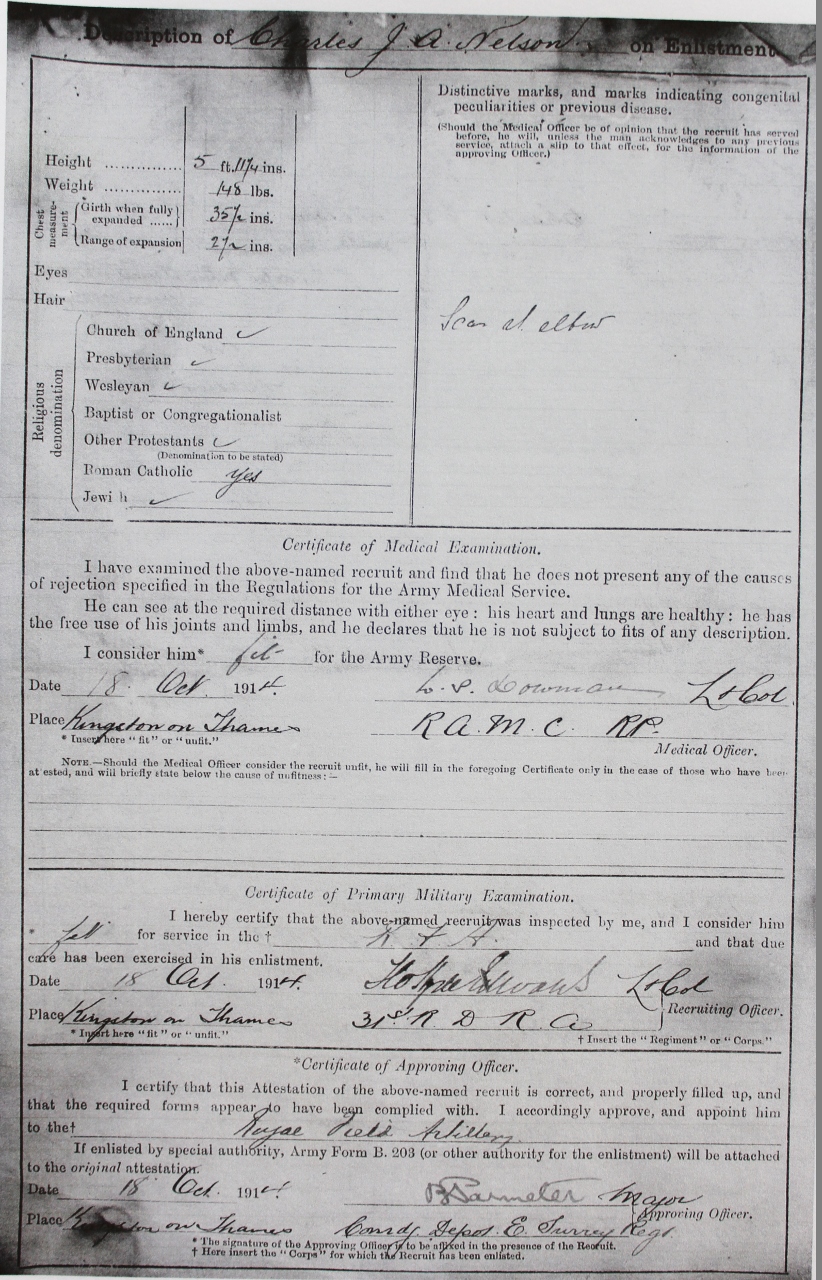 Description of Charles J. A. Nelson on Enlistment
Distinctive marks, and marks indicating congenital
peculiarities or previous disease.
(Should the Medical Officer be of opinion that the recruit has served
before, he will, unless the man acknowledges to any previous
service, attach a slip to that effect, for the information of the
approving Officer.)
Height 5 ft. 11¼ ins.
Weight 148 lbs.
Chest measurement
Girth when fully expanded 35½ ins.
Range of expansion 2½ ins.
Eyes
Hair
Scar at elbow
Religious denomination
Church of England
Presbyterian
Wesleyan
Baptist or Congregationalist
Other Protestants
(Denomination to be stated)
Roman Catholic yes
Jewi h
Certificate of Medical Examination.
I have examined the above-named recruit and find that he does not present any of the causes
of rejection specified in the Regulations for the Army Medical Service.
He can see at the required distance with either eye : his heart and lungs are healthy : he has
the free use of his joints and limbs, and he declares that he is not subject to fits of any description.
I consider him* fit for the Army Reserve.
Date 18 Oct. 1914. Lt Col.
Place Kingston on Thames R.A.M.C. RP.
* Insert here "fit" or "unfit." Medical Officer.
NOTE.—Should the Medical Officer consider the recruit unfit, he will fill in the foregoing Certificate only in the case of those who have been
at ested, and will briefly state below the cause of unfitness :—
Certificate of Primary Military Examination.
I hereby certify that the above-named recruit was inspected by me, and I consider him
* fit for service in the † R F A. and that due
care has been exercised in his enlistment.
Date 18 Oct. 1914. Lt Col
Place Kingston on Thames 31st R D R A Recruiting Officer.
* Insert here "fit" or "unfit." † Insert the "Regiment" or "Corps."
*Certificate of Approving Officer.
I certify that this Attestation of the above-named recruit is correct, and properly filled up, and
that the required forms appear to have been complied with. I accordingly approve, and appoint him
to the† Royal Field Artillery.
If enlisted by special authority, Army Form B. 203 (or other authority for the enlistment) will be attached
to the original attestation.
Date 18 Oct. 1914. Major
Approving Officer.
Place Kingston on Thames Comdg Depot. E. Surrey Regt
* The signature of the Approving Officer is to be affixed in the presence of the Recruit.
† Here insert the "Corps" for which the Recruit has been enlisted.